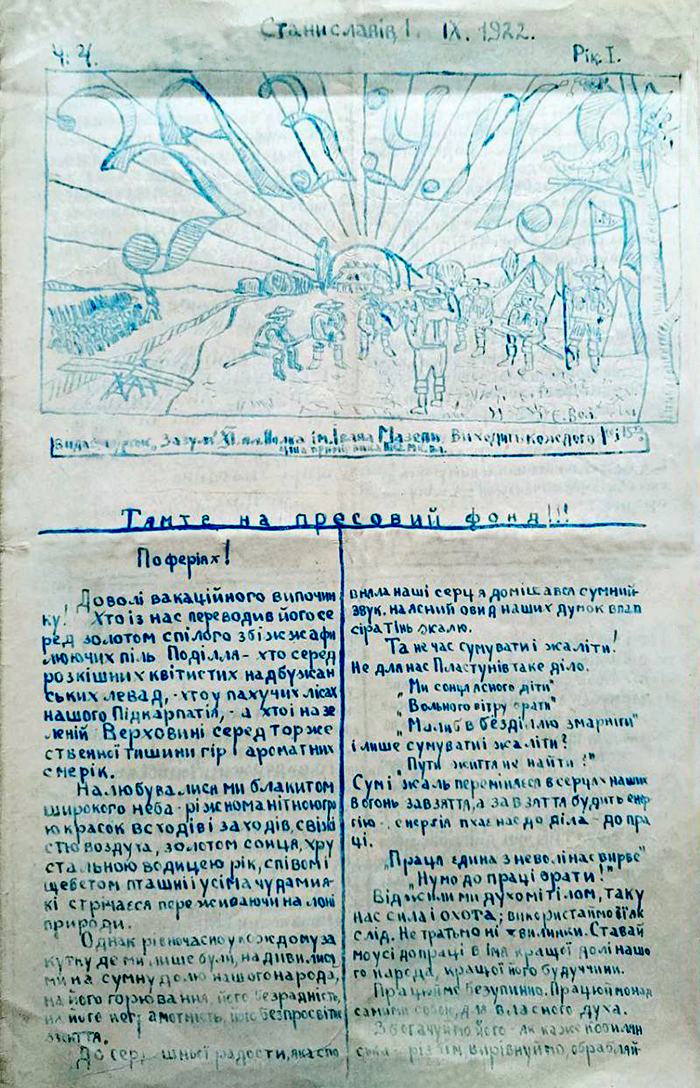 Станиславів, 1. IX. 1922.
Ч. 4.
Рік I.
Видає курінь
ім. Івана Мазепи. Виходить кождого 1 і 15
на пресовий фонд!!!
По феріях!
Доволі вакаційного випочин
ку! Хто із нас переводив його се
ред золотом спілого збіжжа фи
люючих піль Поділля - хто серед
розкішних квітистих надбужан
ських левад, - хто у пахучих лісах
нашого Підкарпатія, - а хто і на зе
леній Верховині серед торже
ственної тишини гір і ароматних
смерік.
Налюбувалися ми блакитом
широкого неба - ріжноманітною гро
ю красок всходів і заходів, свіжі
стю воздуха, золотом сонця, хру
стальною водицею рік, співом і
щебетом пташні і усіма чудами я-
кі стрічаєся переживаючи на лоні
природи.
Однак рівночасно у кождому за
кутку де ми лише були, надивились
ми на сумну долю нашого народа,
на його горювання, його безрадність,
на його неграмотність, його безпросвітне
життя.
До сердешньої радости, яка спо
вняла наші серця домішався сумний
звук, на ясний овид наших думок впала
сіра тінь жалю.
Та не час сумувати і жаліти!
Не для нас Пластунів таке діло.
„Ми сонця ясного діти"
„Вольного вітру брати"
„Мали б в безділлю змарніти"
і лише сумувати і жаліти?
„Пути життя не найти?"
Сум і жаль переміняєся в серцях наших
в огонь завзяття, а завзяття будить енер
гію - енергія пхає нас до діла - до пра
ці.
„Праця єдина з неволі нас вирве"
„Нумо до праці брати!"
Віджили ми духом і тілом, таку
нас сила і охота; використаймо її як
слід. Не тратьмо ні хвилинки. Ставай
мо усі до праці в імя кращої долі нашо
го народа, кращої його будуччини.
Працюймо безупинно. Працюймо над
самими собою, для власного духа.
Збогачуймо його - як каже
ська - різьбім вирівнуймо, обрабляй-